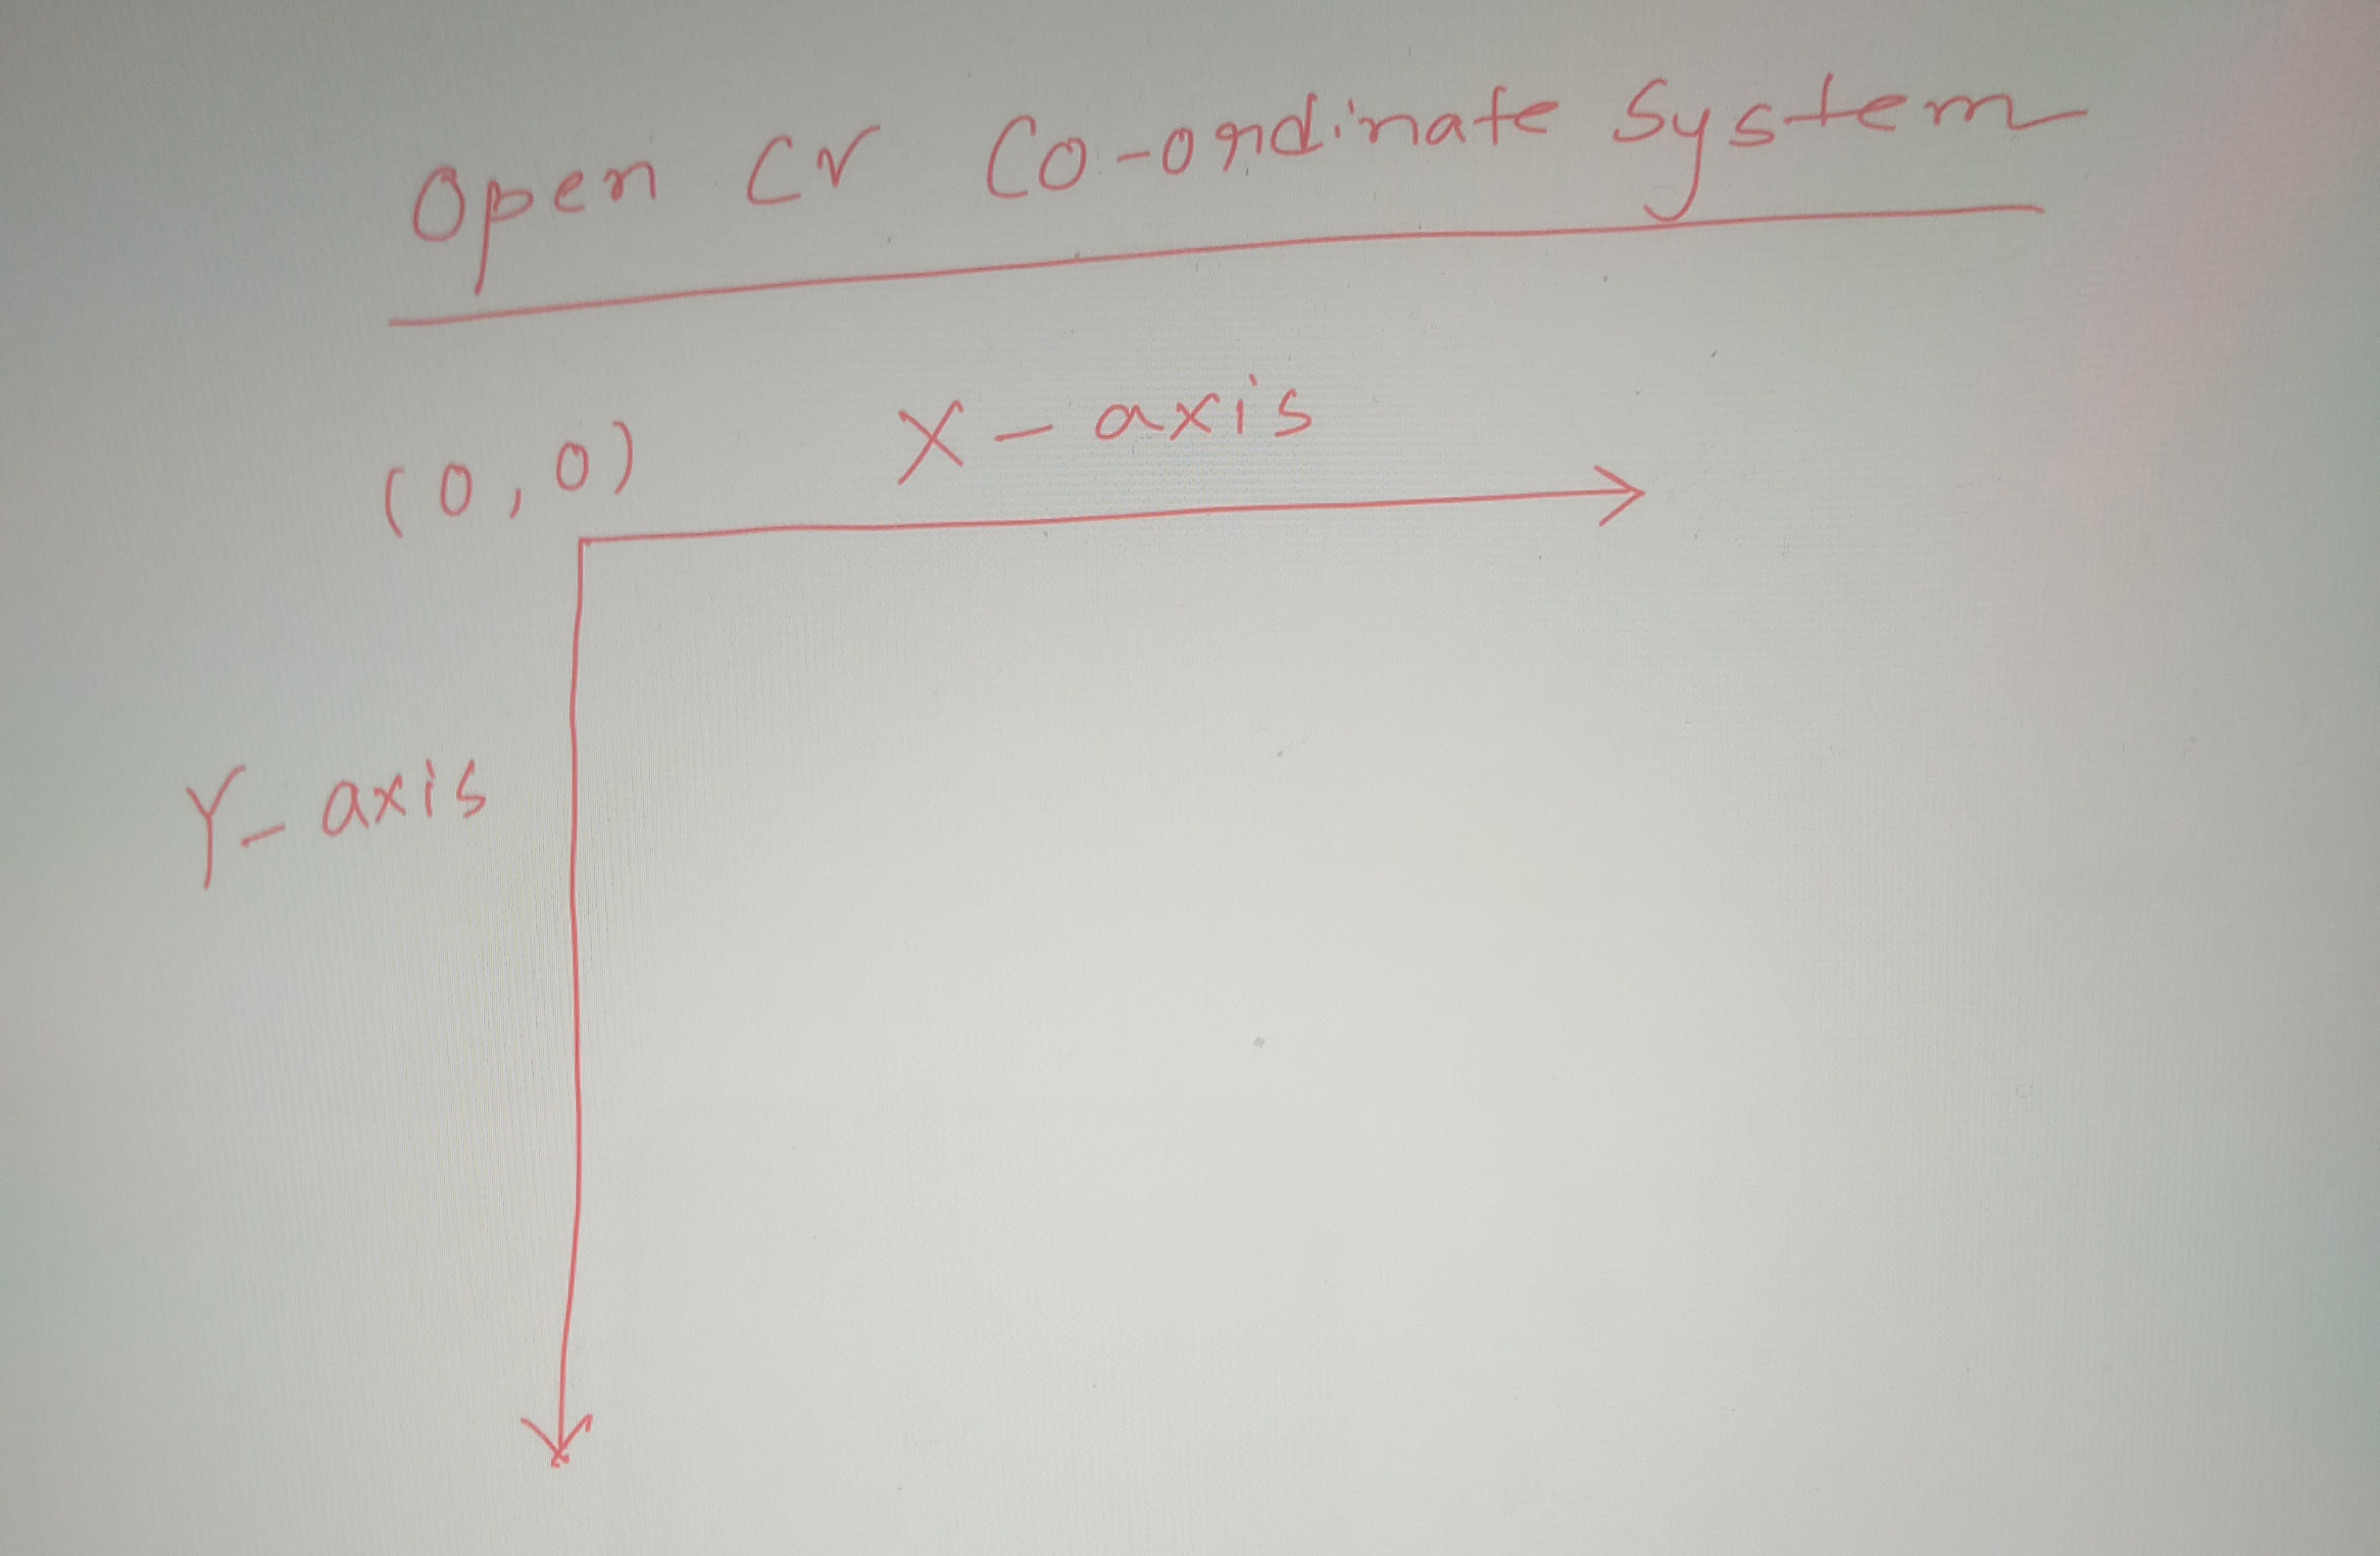 Open CV Co-ordinate System
(0,0) X-axis
Y-axis